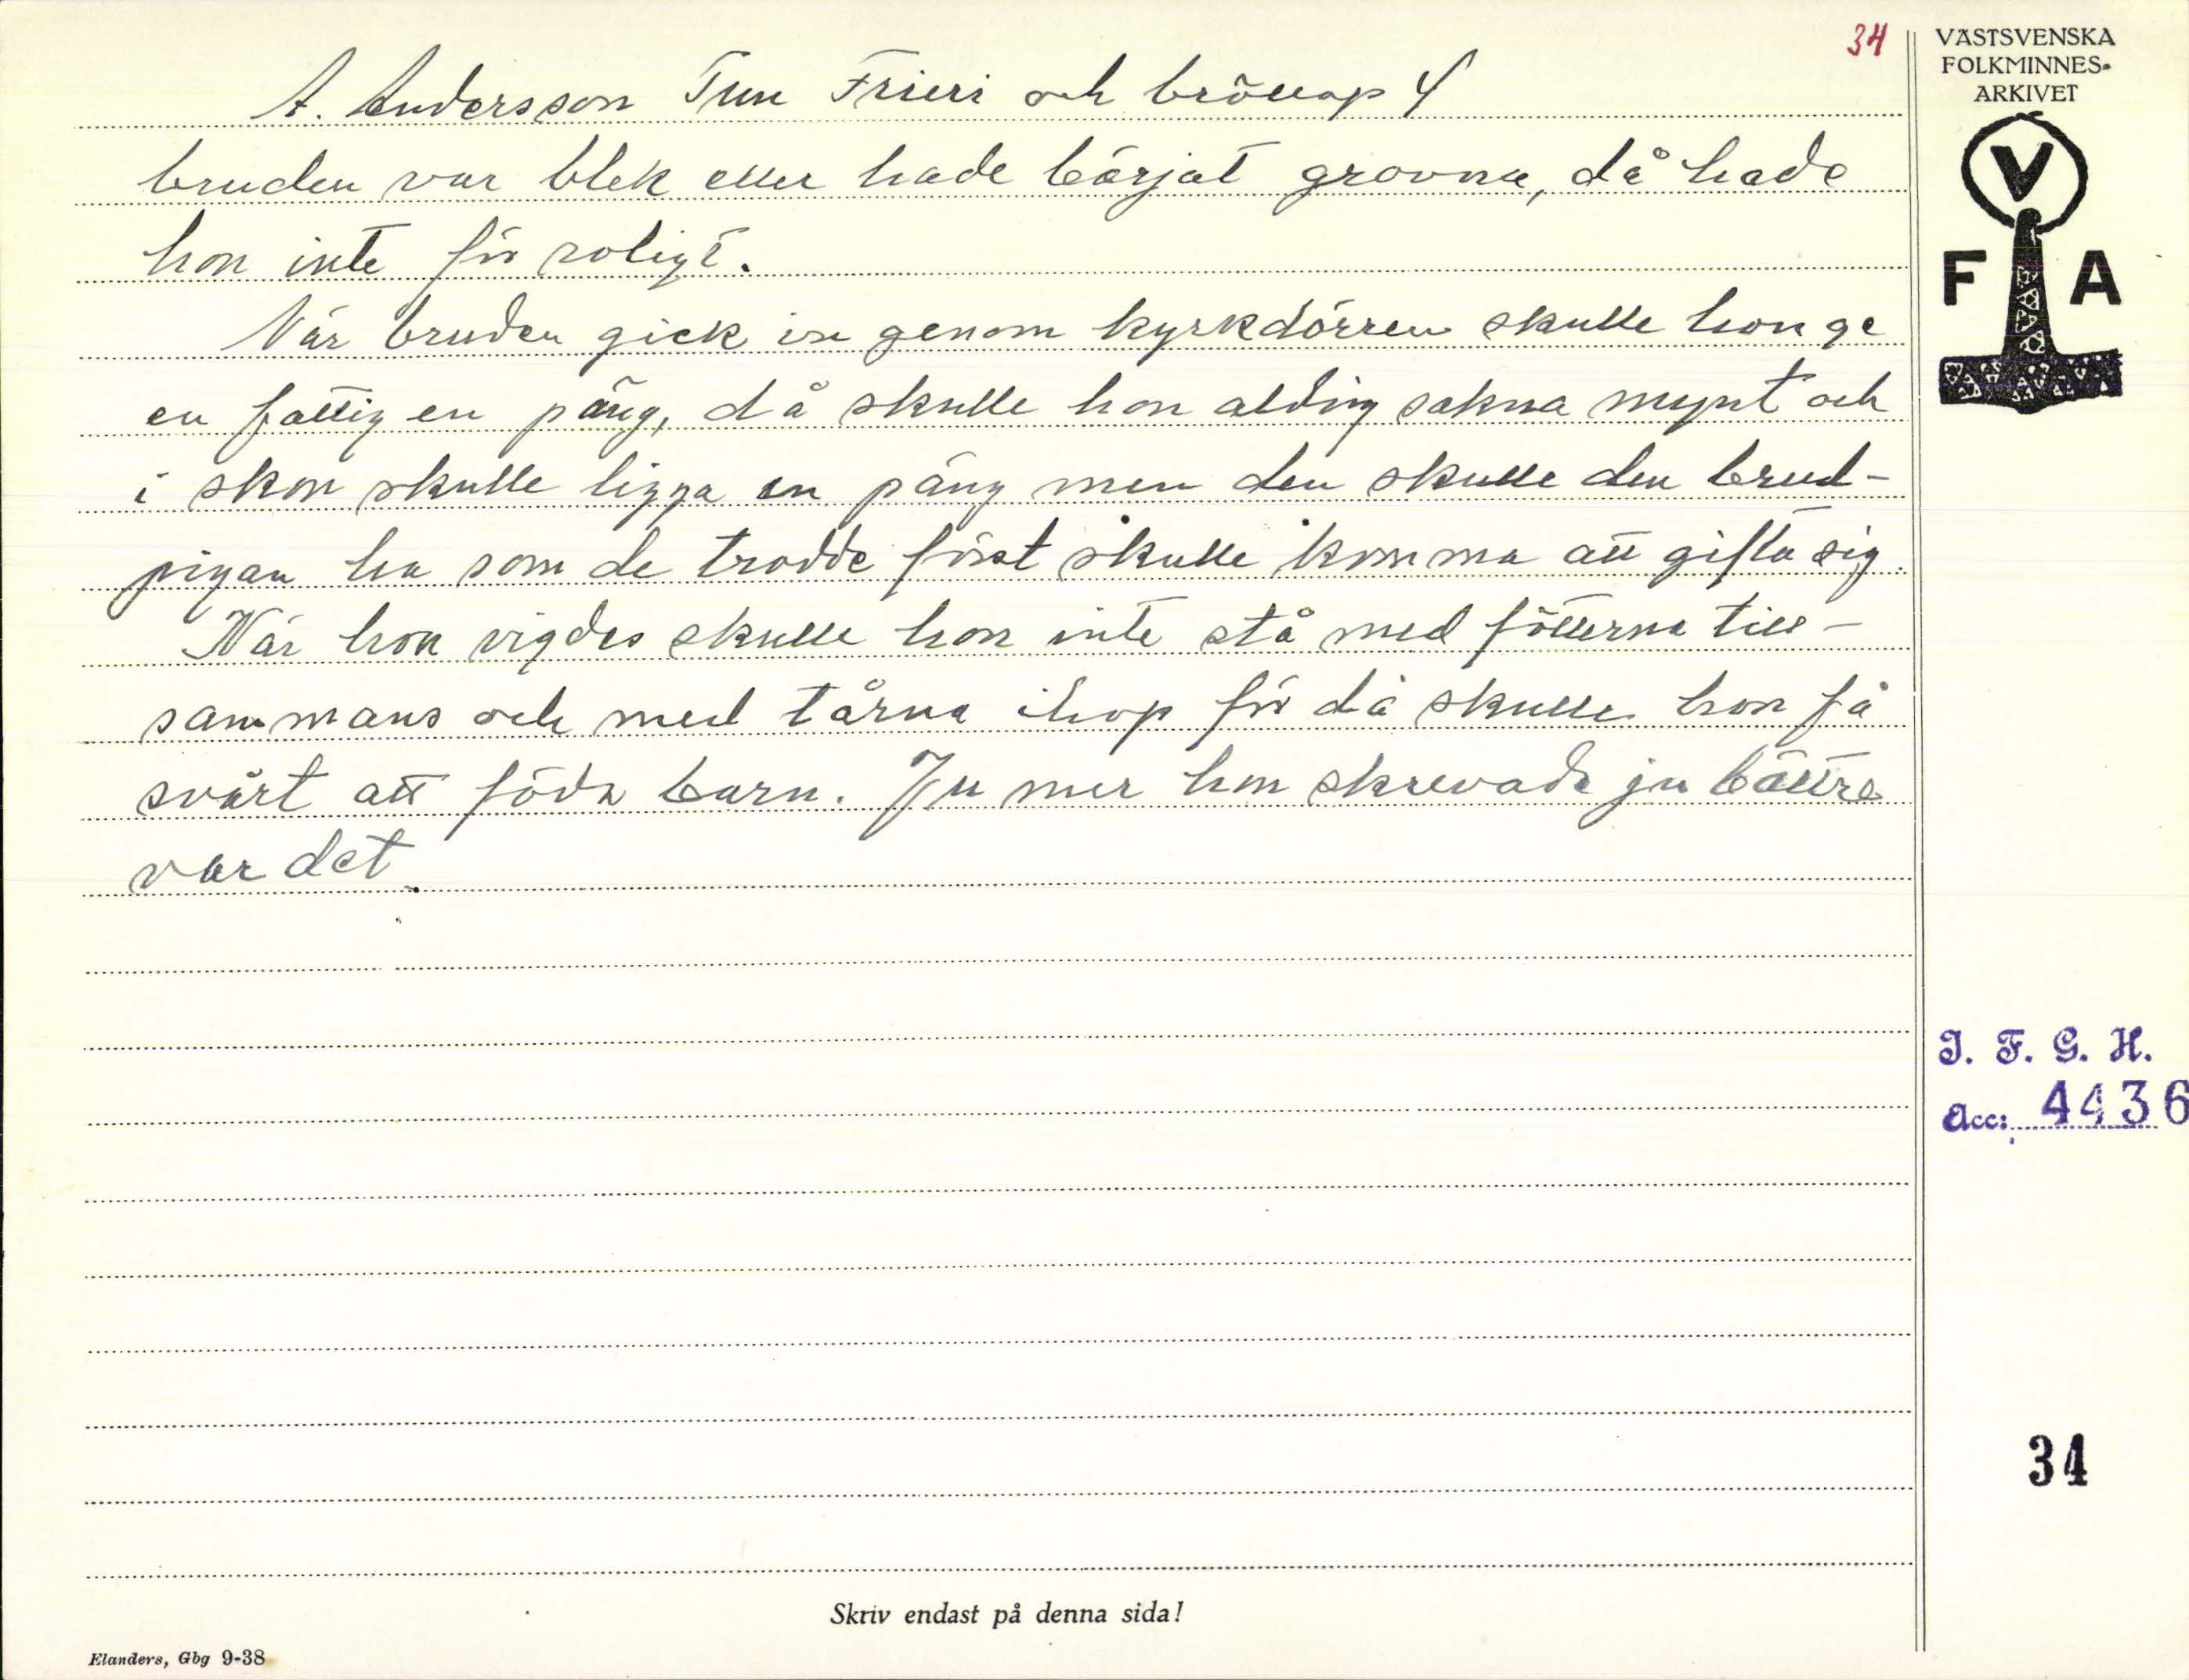 34
A. Andersson Tun Frieri och bröllop 4
bruden var blek eller hade börjat grovna, då hade
hon inte för roligt.
När bruden gick in genom kyrkdörren skulle hon ge
en fattig en päng, då skulle hon aldrig sakna mynt och
i skon skulle ligga en päng men den skulle den brud-
pigan ha som de trodde först skulle komma att gifta sig.
När hon vigdes skulle hon inte stå med fötterna till-
sammans och med tårna ihop för då skulle hon få
svårt att föda barn. Ju mer hon skrevade ju bättre
var det.
Skriv endast på denna sida!
Elanders, Gbg 9-38
VÄSTSVENSKA
FOLKMINNES-
ARKIVET
V
F A
I. F. G. H.
Acc: 4436
34